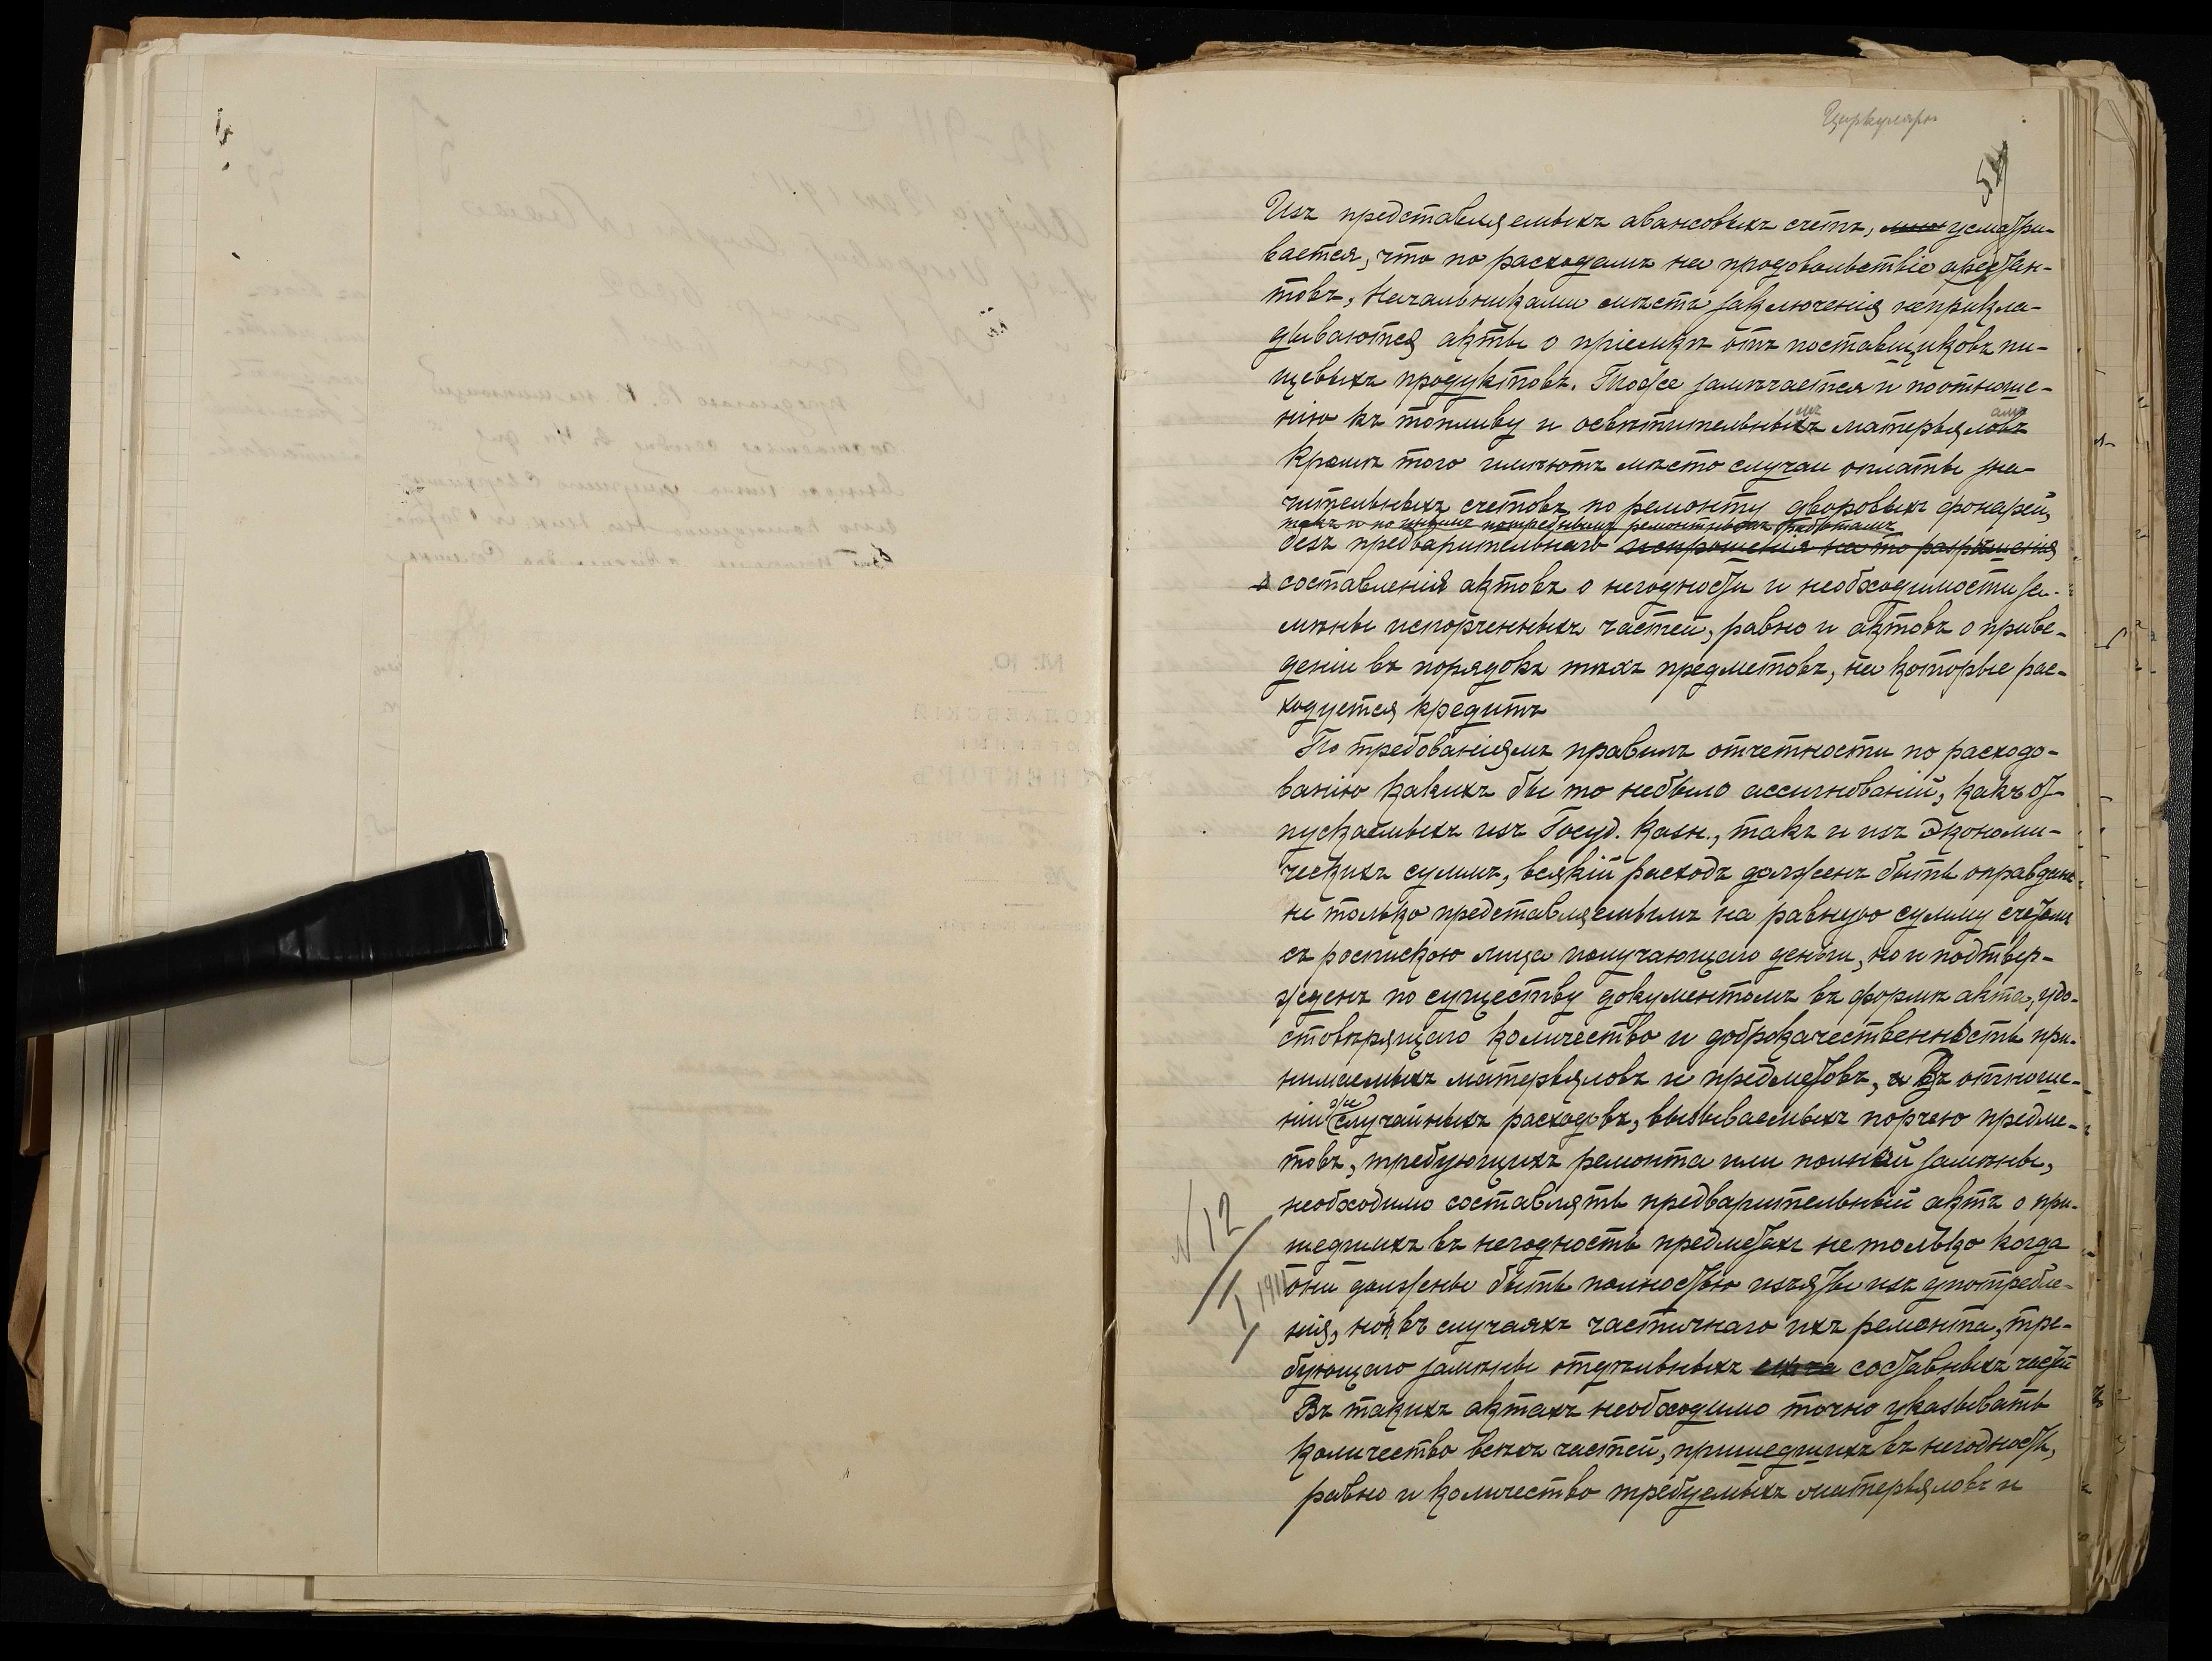 Циркуляръ
54
Изъ представляемыхъ авансовыхъ счетъ, усматри-
вается, что по расходамъ на продовольствіе арестан-
товъ, Начальниками мѣстъ заключенія неприкла-
дываются акты о пріемкѣ отъ поставщиковъ пи-
щевыхъ продуктовъ. Тоже замѣчается и поотноше-
нію къ топливу и освѣтительнымъ матерьяламъ
Кромѣ того имѣютъ мѣсто случаи оплаты зна-
чительныхъ счетовъ по ремонту дворовыхъ фонарей,
такъ и по инымъ потребнымъ ремонтнымъ работамъ
безъ предварительнаго испрошенія на то разрѣшенія
составленія актовъ о негодности и необходимости за-
мѣны испорченныхъ частей, равно и актовъ о приве-
деніи въ порядокъ тѣхъ предметовъ, на которые рас-
ходуется кредитъ
По требованіямъ правилъ отчетности по расходо-
ванію какихъ бы то небыло ассигнованій, какъ от-
пускаемыхъ изъ Госуд. Казн., такъ и изъ Экономи-
ческихъ суммъ, всякій расходъ долженъ быть оправданъ
не только представляемымъ на равную сумму счетомъ
съ роспискою лица получающаго деньги, но и подтвер-
жденъ по существу документомъ въ формѣ акта, удо-
стовѣрящаго количество и доброкачественность при-
нимаемыхъ матерьяловъ и предметовъ, Въ отноше-
ніи же случайныхъ расходовъ, вызываемыхъ порчею предме-
товъ, требующихъ ремонта или полной замѣны,
необходимо составлять предварительный актъ о при-
шедшихъ въ негодность предметахъ не только когда
они должны быть полностью изъяты изъ употребле-
нія, но и въ случаяхъ частичнаго ихъ ремонта, тре-
бующаго замѣны отдѣльныхъ составныхъ частей
Въ такихъ актахъ необходимо точно указывать
количество всѣхъ частей, пришедшихъ въ негодность,
равно и количество требуемыхъ матерьяловъ и
N 12
I 1911